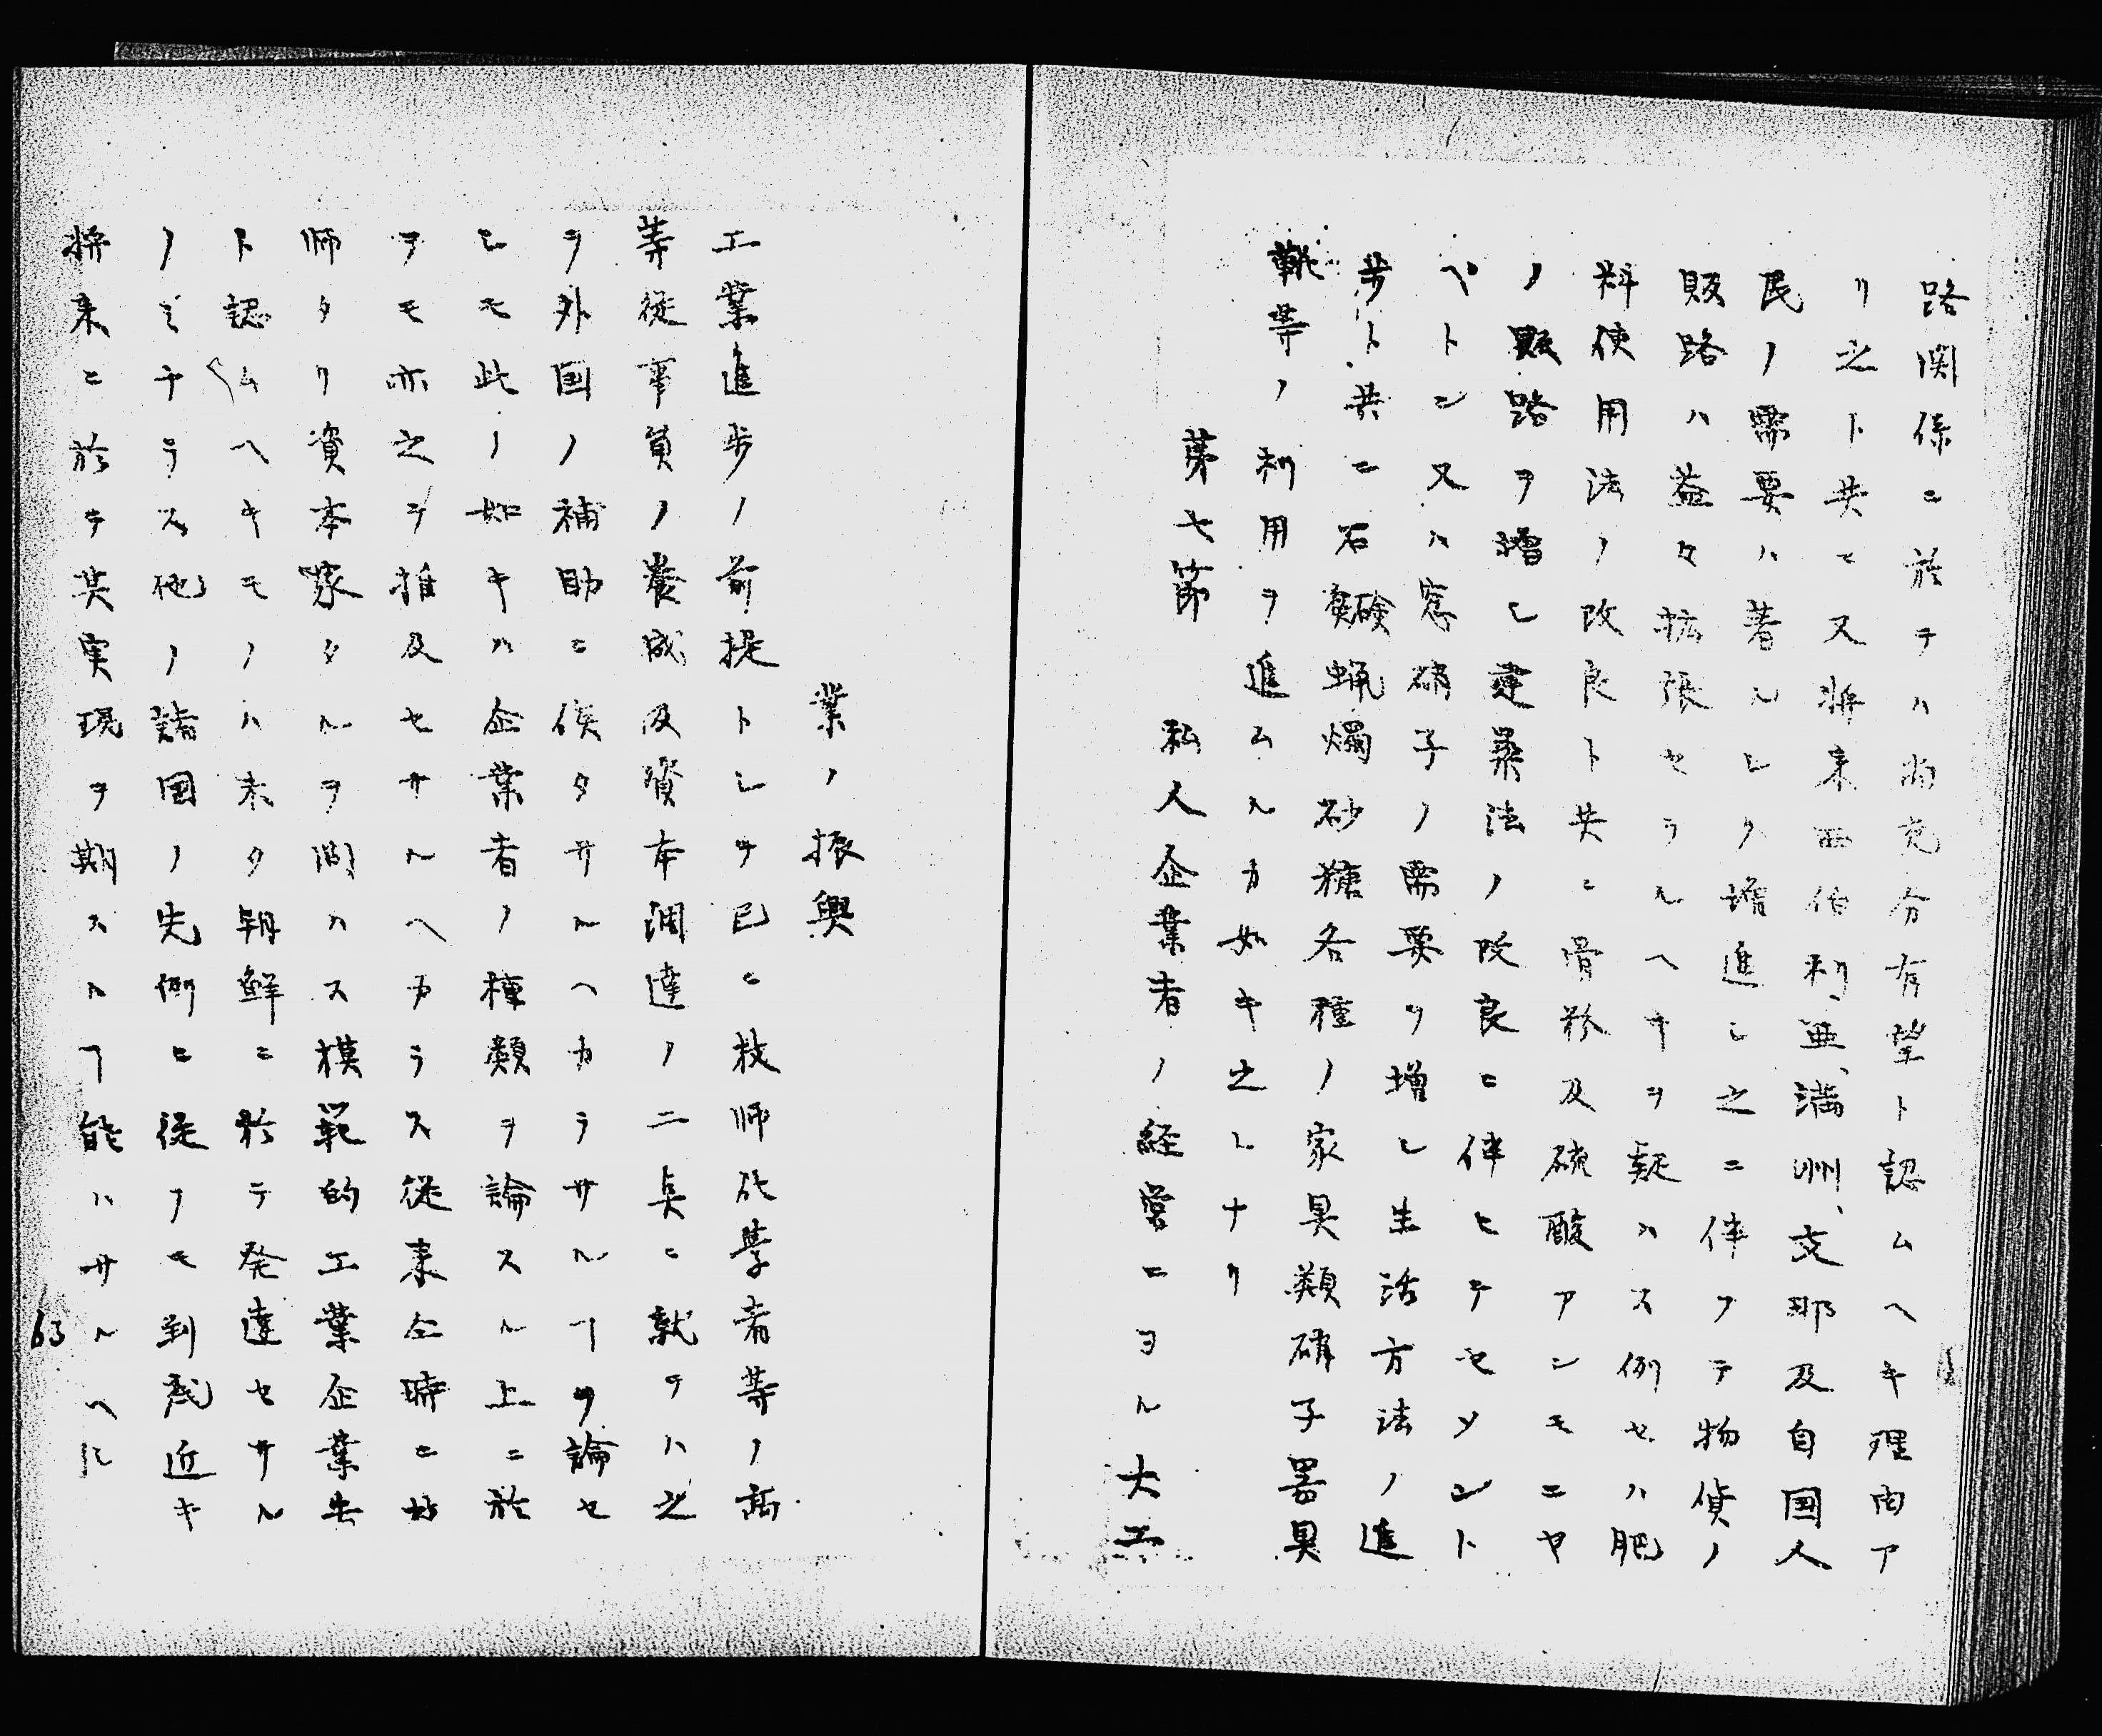 路関係ニ於テハ尚充分有望ト認ムヘキ理由ア
リ之ト共ニ又将来西伯利、亜、満洲、支那及自国人
民ノ需要ハ著ルシク増進シ之ニ伴フテ物貨ノ
販路ハ益々拡張セラルヘキヲ疑ハス例セハ肥
料使用法ノ改良ト共ニ骨粉及硫酸アンモニヤ
ノ販路ヲ増シ建築法ノ改良ニ伴ヒテセメント
ペトン又ハ窓硝子ノ需要ヲ増シ生活方法ノ進
歩ト共ニ石鹸蝋燭砂糖各種ノ家具類硝子器具
靴等ノ利用ヲ進ムルカ如キ之レナリ
第七節 私人企業者ノ経営ニヨル大工
業ノ振興
工業進歩ノ前提トシテ已ニ技師化学者等ノ高
等従事員ノ養成及資本調達ノ二点ニ就テハ之
ヲ外国ノ補助ニ俟タサルヘカラサルヿヲ論セ
シモ此ノ如キハ企業者ノ種類ヲ論スル上ニ於
テモ亦之ヲ推及セサルヘカラス従来仝時ニ技
師タリ資本家タルヲ問ハス模範的工業企業者
ト認ムヘキモノハ未タ朝鮮ニ於テ発達セサル
ノミナラス他ノ諸国ノ先例ニ従フモ到底近キ
将来ニ於テ其実現ヲ期スルヿ能ハサルヘシ
63